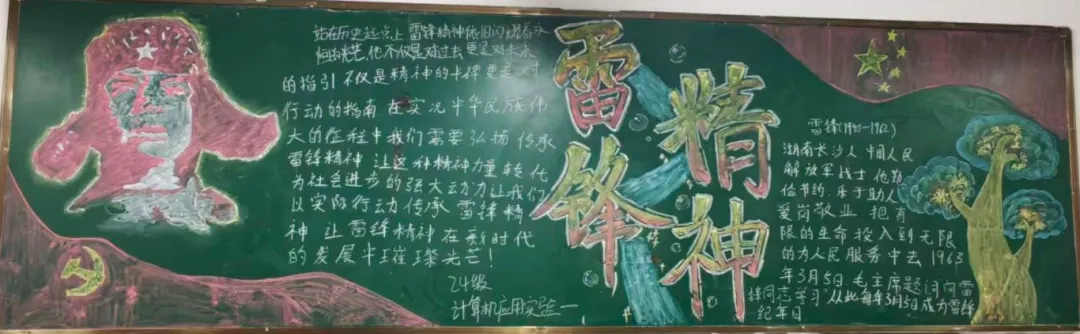 站在历史起点上 雷锋精神依旧闪耀着永
恒的光芒,他不仅是对过去 更是对未来
的指引 不仅是精神的丰碑 更是
行动的指南 在实况中华民族伟
大的征程中 我们需要弘扬 传承
雷锋精神 让这种精神力量 转化
为社会进步的强大动力 让我们
以实际行动传承 雷锋精
神 让 雷锋精神 在 新时代
的 发展 中璀璨光芒!
24级
计算机应用实验一
雷锋
精神
雷锋(1940-1962)
湖南长沙人 中国人民
解放军战士 他勤
俭节约 乐于助人
爱岗敬业 把有
限的生命 投入到 无限
的为人民 服务中去 1963
年3月5日 毛主席题词 向雷
锋同志学习 从此每年3月5日成为雷锋
纪年日